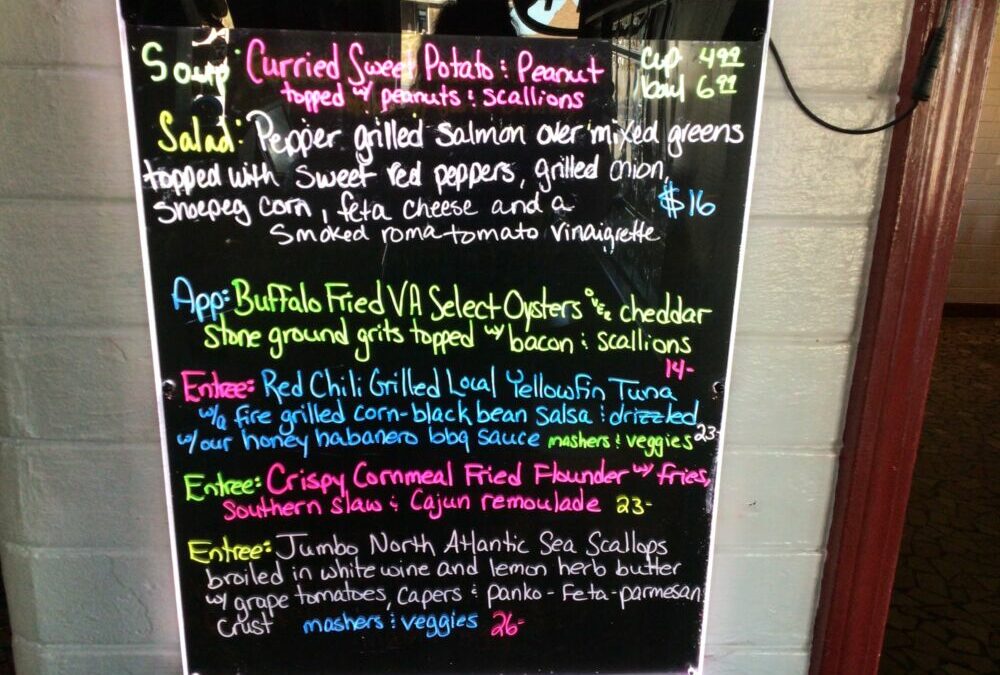 Soup: Curried Sweet Potato & Peanut cup 4.99
topped w/ peanuts & scallions bowl 6.99
Salad: Pepper grilled salmon over mixed greens
topped with sweet red peppers, grilled onion,
shoepeg corn, feta cheese and a $16
smoked roma tomato vinaigrette
App: Buffalo Fried VA Select Oysters over cheddar
stone ground grits topped w/ bacon & scallions
14-
Entree: Red Chili Grilled Local Yellowfin Tuna
w/a fire grilled corn-black bean salsa & drizzled
w/our honey habanero bbq sauce mashers & veggies 23-
Entree: Crispy Cornmeal Fried Flounder w/ fries,
Southern slaw & Cajun remoulade 23-
Entree: Jumbo North Atlantic Sea Scallops
broiled in white wine and lemon herb butter
w/ grape tomatoes, capers & panko-feta-parmesan
crust mashers & veggies 26-